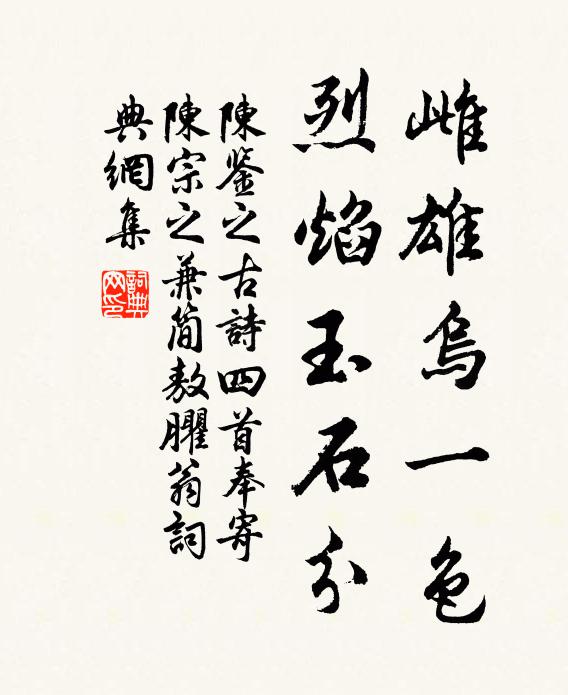 雌雄烏一色
烈焰玉石分
陳鑒之古詩四首奉寄
陳宗之兼簡敖臞翁詞
典網集
詞典網印